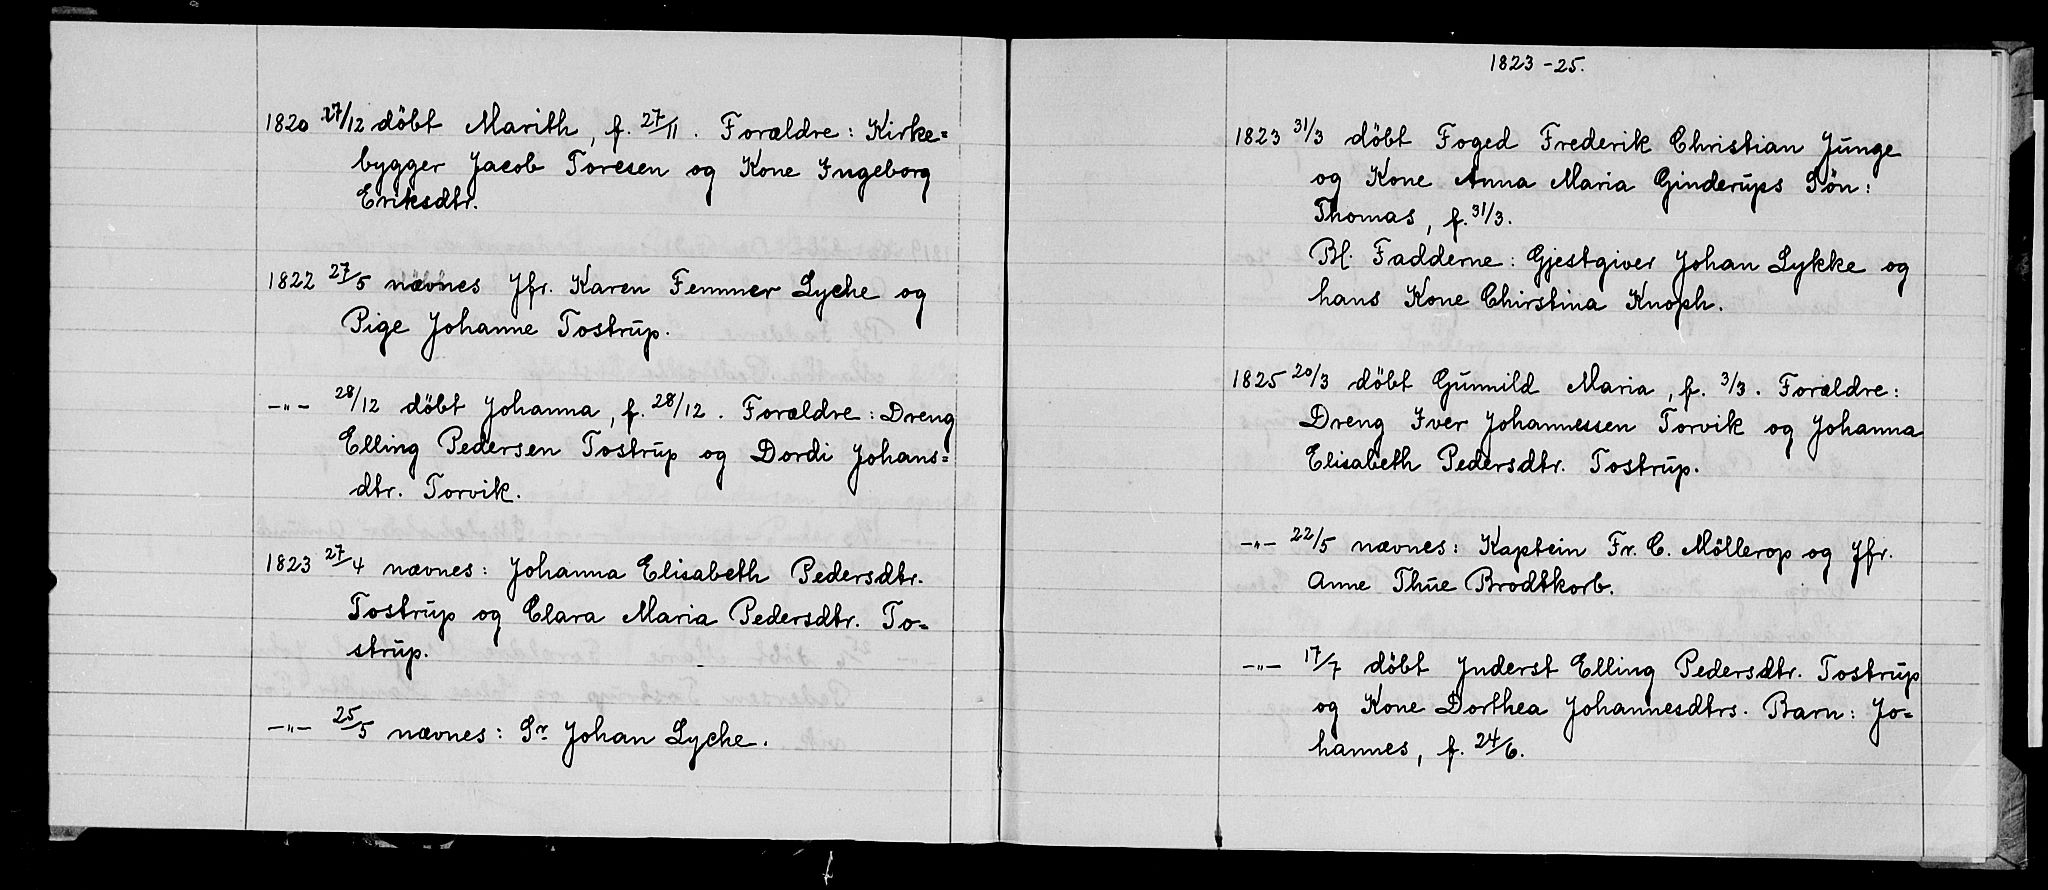 1820 27/12 döbt Marith, f. 27/11. Forældre: Kirke=
bygger Jacob Toresen og Kone Ingeborg
Eriksdtr.
1822 27/5 nævnes Jfr. Karen Femmer Lyche og
Pige Johanne Tostrup.
-"- 28/12 döbt Johanna, f. 28/12. Forældre: Dreng
Elling Pedersen Tostrup og Dordi Johans=
dtr. Torvik.
1823 27/4 nævnes: Johanna Elisabeth Pedersdtr.
Tostrup og Clara Maria Pedersdtr. To=
strup.
-"- 25/5 nævnes: Sr. Johan Lyche.
1823-25.
1823 31/3 döbt Foged Frederik Christian Junge
og Kone Anna Maria Ginderups Sön:
Thomas, f. 31/3.
Bl. Fadderne: Gjestgiver Johan Lykke og
hans Kone Chirstina Knoph.
1825 20/3 döbt Gunnild Maria, f. 3/3. Forældre:
Dreng Iver Johannessen Torvik og Johanna
Elisabeth Pedersdtr. Tostrup.
-"- 22/5 nævnes: Kaptein Fr. C. Möllerop og Jfr.
Anne Thue Brodtkorb.
-"- 17/7 döbt Inderst Elling Pedersdtr. Tostrup
og Kone Dorthea Johannesdtrs. Barn: Jo=
hannes, f. 24/6.